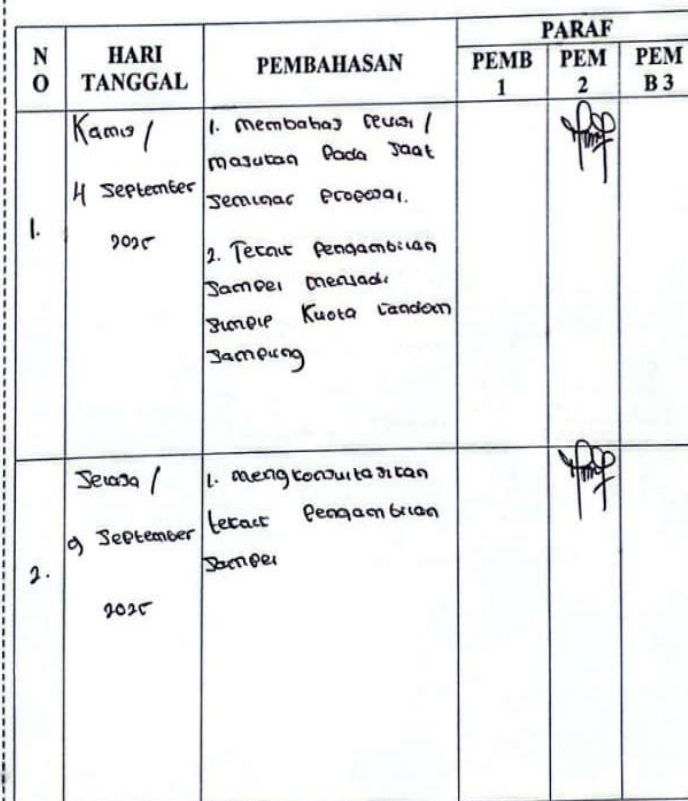 PARAF
N
O
HARI
TANGGAL
PEMBAHASAN
PEMB
1
PEM
2
PEM
B 3
1.
Kamis /
4 September
2025
1. Membahas revisi /
masukan Pada Saat
Seminar Proposal.
2. Terkait Pengambilan
Sampel menjadi
Simple Kuota random
Sampling
2.
Selasa /
9 September
2025
1. mengkonsultasikan
terkait Pengambilan
Sampel